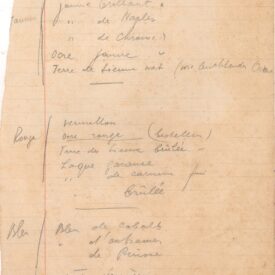 Jaune brillant "
Jaunes
" de Naples
" de Chrome
Ocre jaune "
Terre de Sienne nat (
Rouge
vermillon
Ocre rouge (
Terre de Sienne brûlée "
Laque garance
" de carmin
brûlée
Bleu
Bleu de cobalt
" d'outremer
" de Prusse